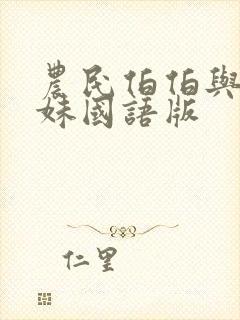 農民伯伯與
妹國語版
仁里